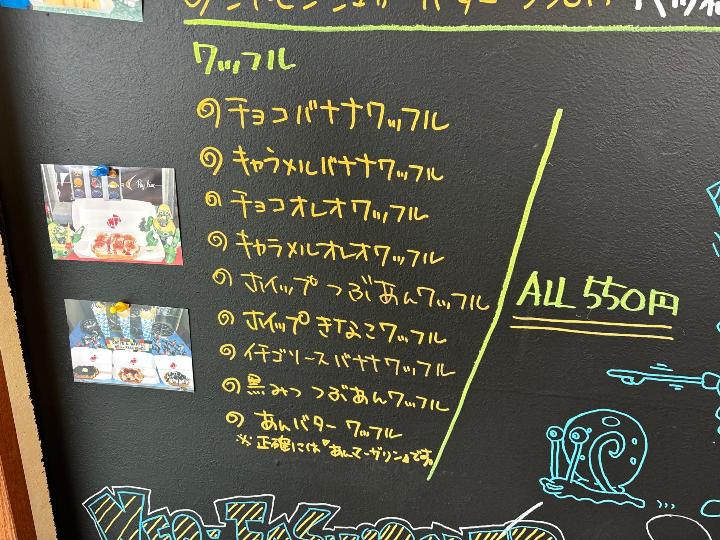 ワッフル
チョコバナナワッフル
キャラメルバナナワッフル
チョコオレオワッフル
キャラメルオレオワッフル
ホイップつぶあんワッフル
ホイップきなこワッフル
イチゴソースバナナワッフル
黒みつつぶあんワッフル
あんバターワッフル
※正確には『あんマーガリン』です。
ALL 550円